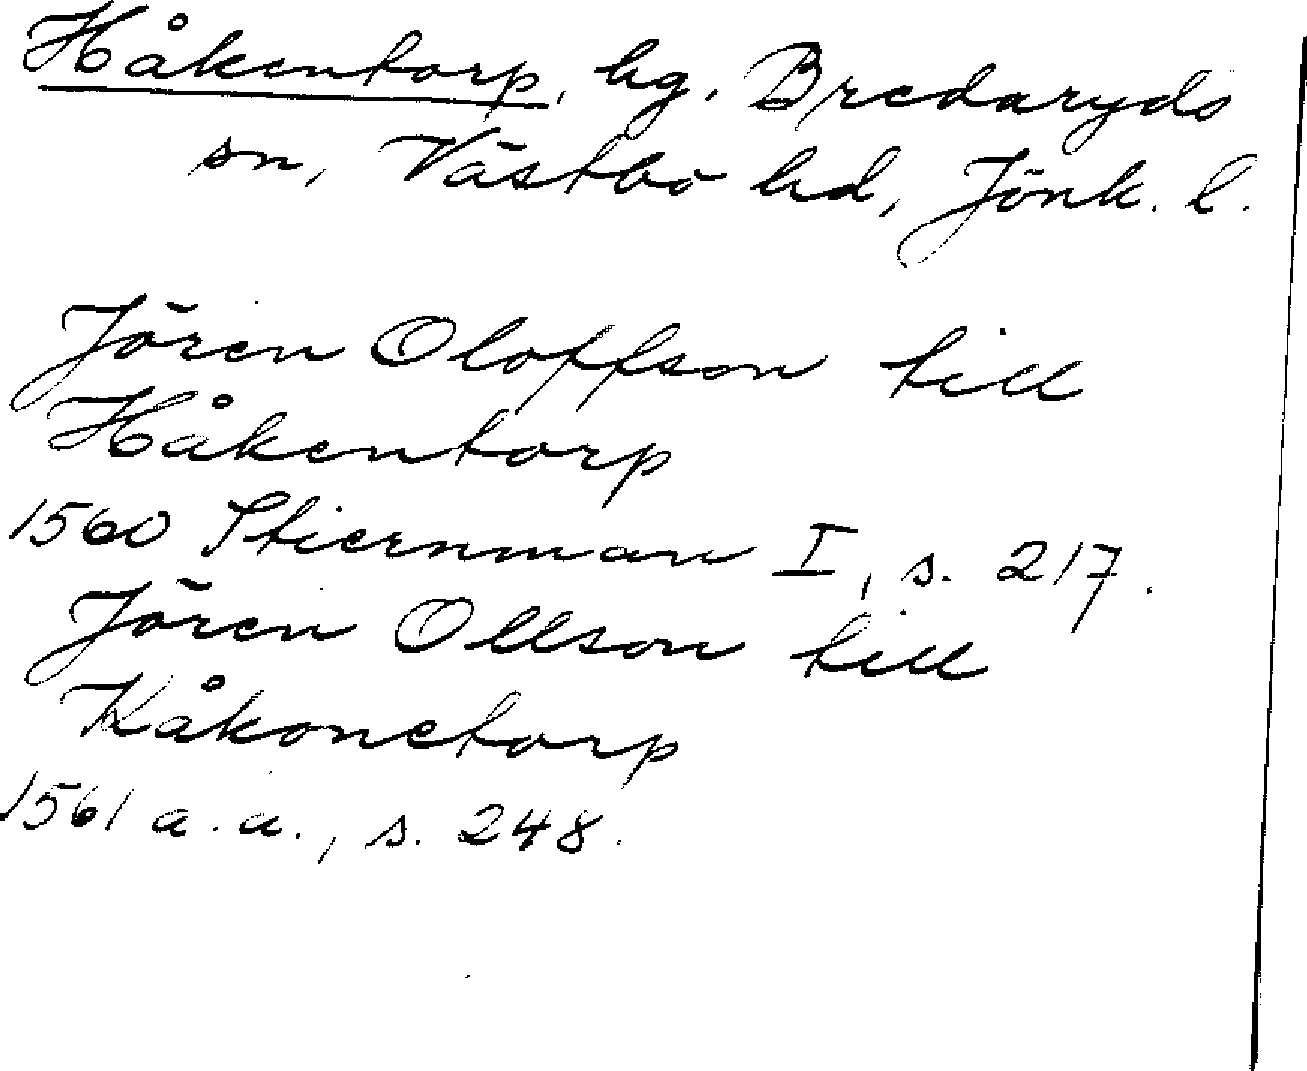 Håkentorp, hg. Bredaryds
sn, Västbo hd, Jönk. l.
Jören Oloffson till
Håkentorp
1560 Stiernman I, s. 217.
Jören Ollson till
Kåkonetorp
1561 a.a., s. 248.